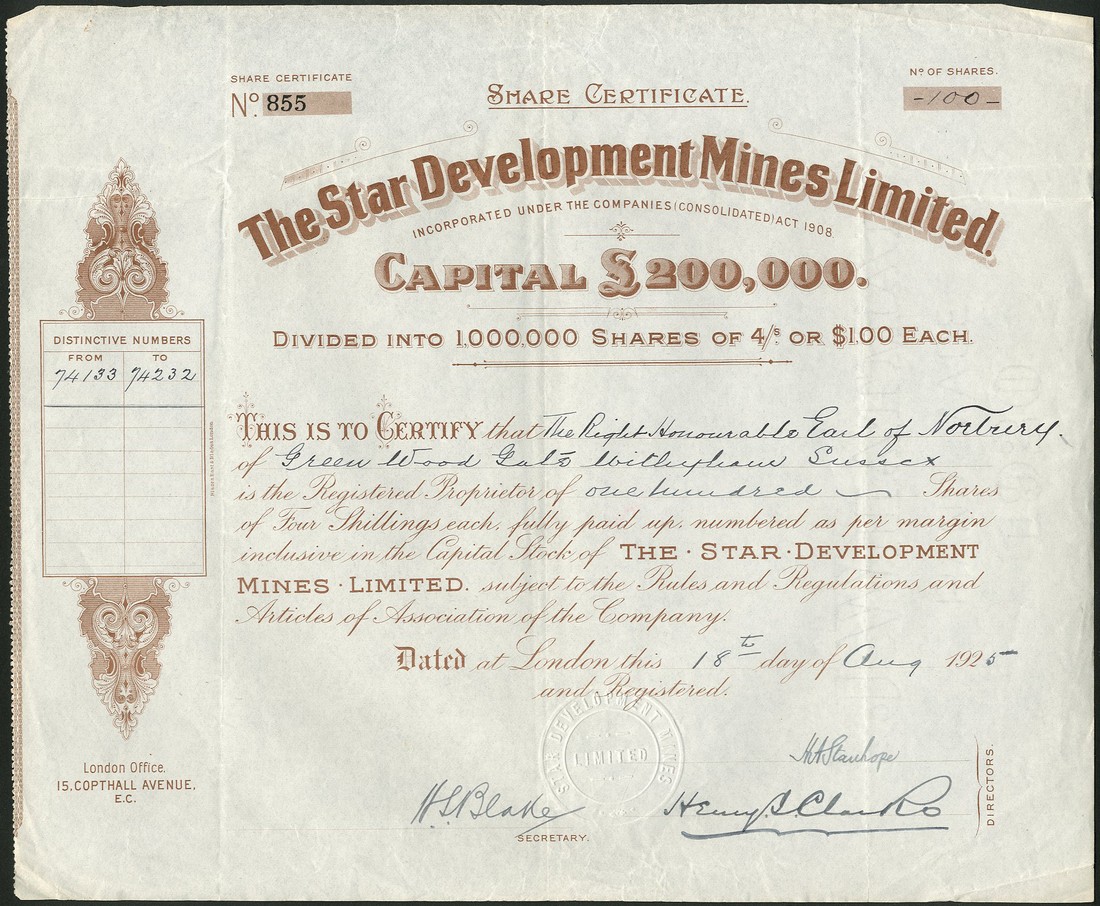 SHARE CERTIFICATE
No. 855
SHARE CERTIFICATE.
No OF SHARES.
-100-
The Star Development Mines Limited.
INCORPORATED UNDER THE COMPANIES (CONSOLIDATED) ACT 1908.
CAPITAL £200,000.
DIVIDED INTO 1,000,000 SHARES OF 4/s OR $1.00 EACH.
DISTINCTIVE NUMBERS
FROM TO
74133 74232
THIS IS TO CERTIFY that The Right Honourable Earl of Norbury.
of Green Wood Gate Withyham Sussex
is the Registered Proprietor of one hundred Shares
of Four Shillings each, fully paid up, numbered as per margin
inclusive in the Capital Stock of THE · STAR · DEVELOPMENT
MINES · LIMITED. subject to the Rules and Regulations and
Articles of Association of the Company.
Dated at London this 18th day of Aug 1925
and Registered.
STAR DEVELOPMENT MINES
LIMITED
London Office.
15, COPTHALL AVENUE,
E.C.
H A Stanhope
H S Blake
SECRETARY.
DIRECTORS.